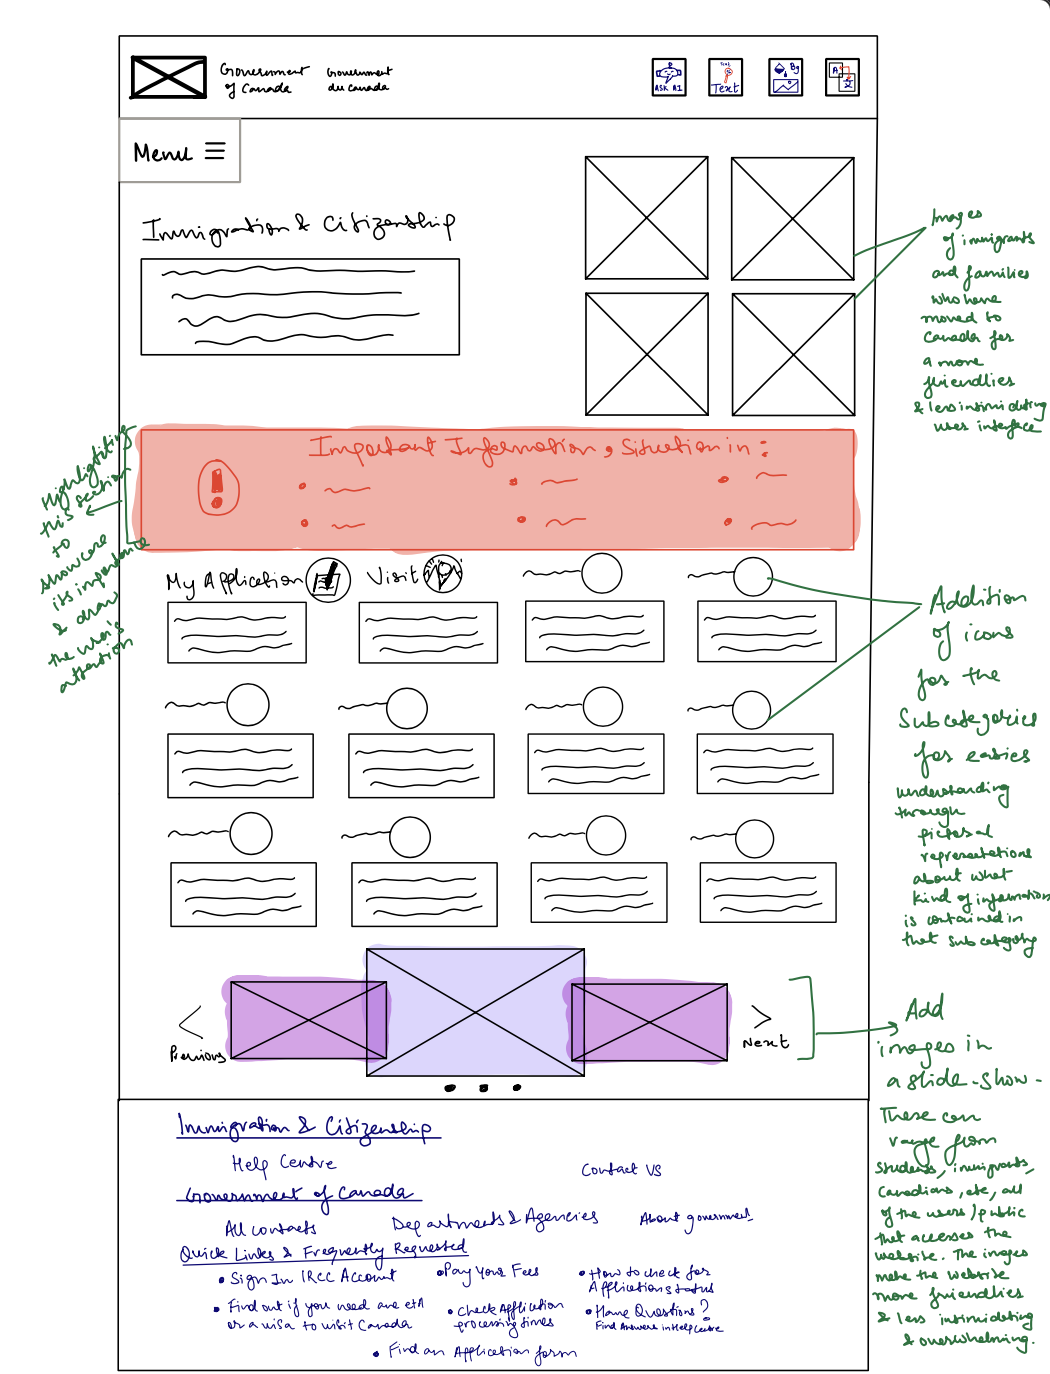 Government
of Canada
Government
du Canada
ASK AI
Text
Text
Bg
A
文
Menu
Immigration & Citizenship
Images
of immigrants
and families
who have
moved to
Canada for
a more
friendlier
& less intimidating
user interface
Important Information, Situation in :
Highlighting
this section
to
showcase
its importance
& draw
the user's
attention
My Application
Visit
Addition
of icons
for the
Subcategories
for easier
understanding
through
pictorial
representations
about what
kind of information
is contained in
that subcategory
Previous
Next
Add
images in
a slide-show.
These can
range from
students, immigrants,
Canadians, etc, all
of the users/public
that accesses the
website. The images
make the website
more friendlier
& less intimidating
& overwhelming.
Immigration & Citizenship
Help Centre
Contact US
Government of Canada
All contacts
Departments & Agencies
About government
Quick Links & Frequently Requested
• Sign In IRCC Account
• Pay Your Fees
• How to check for
Application status
• Find out if you need an etA
or a visa to visit Canada
• Check Application
processing times
• Have Questions?
Find Answers in Help Centre
• Find an Application form